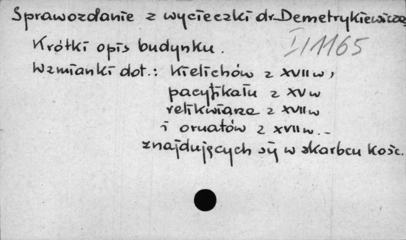 Sprawozdanie z wycieczki dr. Demetrykiewicza
I/1165
Krótki opis budynku.
Wzmianki dot.: kielichów z XVII w,
pacyfikału z XV w
relikwiarza z XVII w
i ornatów z XVII w. -
znajdujących się w skarbcu kośc.